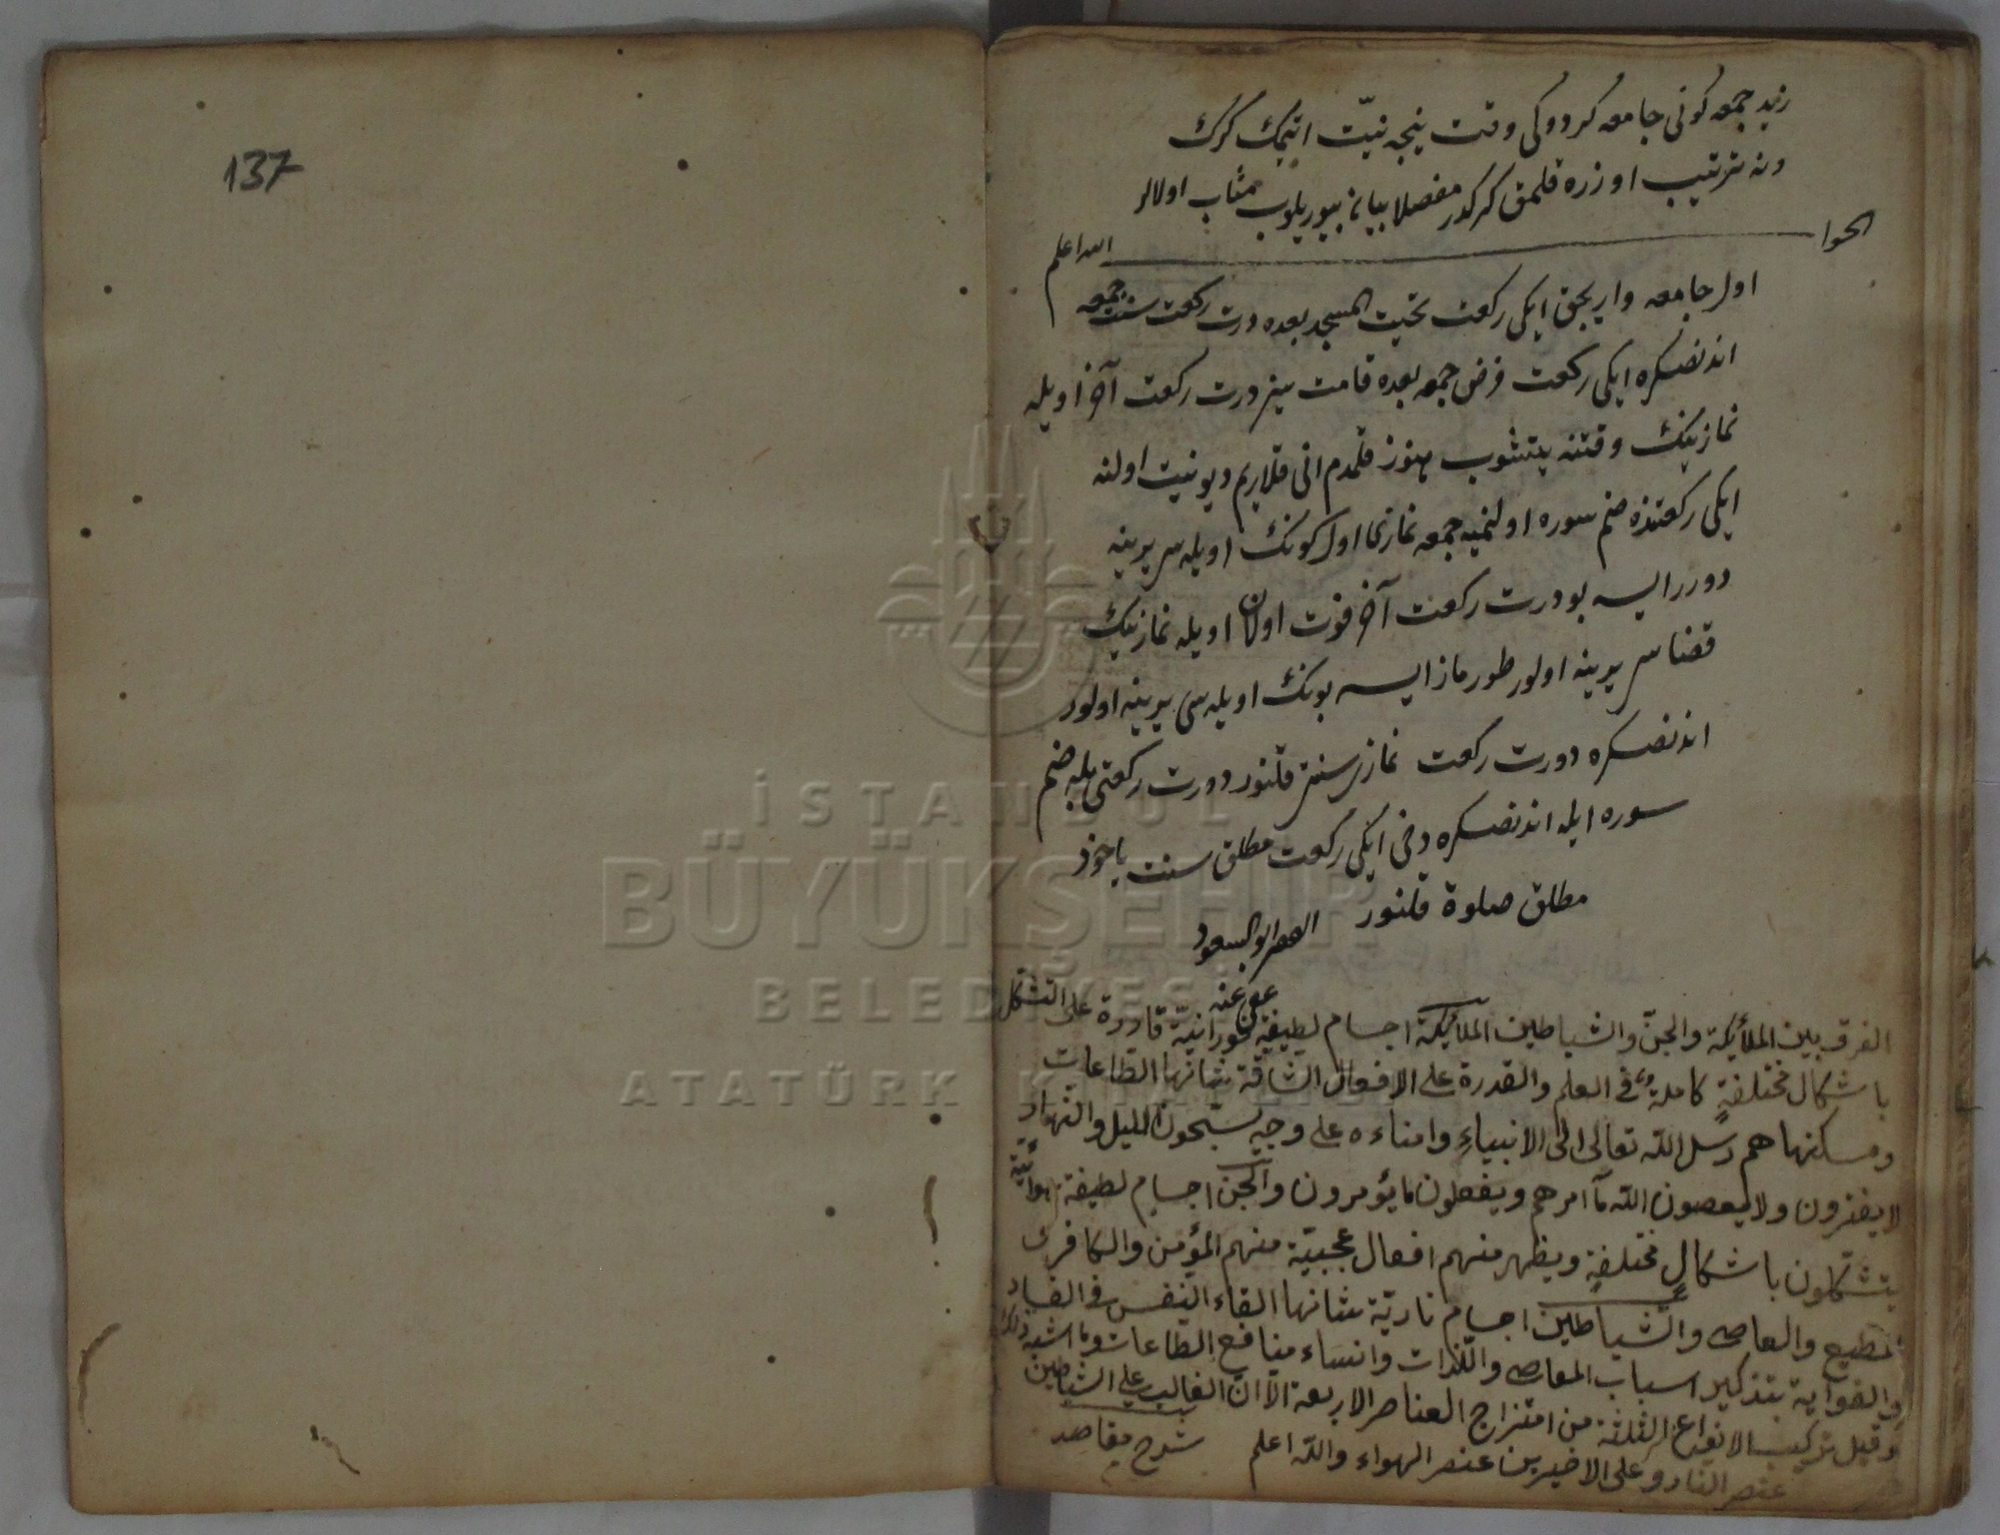 137
زيد جمعه كونى جامعه كردوكى وقت نيجه نيّت اتمك كرك
ونه ترتيب اوزره قلمق كركدر مفصلا بيان بيوريلوب مثاب اولالر
الجوا الله اعلم
اول جامعه واريجق ايكى ركعت تحيت المسجد بعده درت ركعت سنت جمعه
اندنصكره ايكى ركعت فرض جمعه بعده قامت سز درت ركعت آخر اويله
نمازينك وقتنه يتشوب هنوز قلمدم انى قلارم ديو نيت اولنه
ايكى ركعتنده ضم سوره اولنميه جمعه نمازى اول كونك اويله سى يرينه
دورر ايسه بو درت ركعت آخر فوت اولان اويله نمازينك
قضاسى يرينه اولور طورماز ايسه بونك اويله سى يرينه اولور
اندنصكره دورت ركعت نماز سنت قلنور دورت ركعتى بله ضم
سوره ايله اندنصكره دخى ايكى ركعت مطلق سنت ياخود
مطلق صلوة قلنور ابو السعود
عفى عنه
الفرق بين الملائكة والجنّ والشياطين الملائكة اجسام لطيفة نورانيّة قادرة على التشكل
باشكال مختلفةٍ كاملة فى العلم والقدرة على الافعال الشاقة شانها الطّاعات
ومسكنها هم رسل اللّه تعالى الى الانبياءِ وامناءه على وحيه يسبّحون الليل والنّهار
لا يفترون ولا يعصون اللّه ما امرهم ويفعلون ما يؤمرون والجنّ اجسام لطيفة هوائيّة
يتشكّلون باشكالٍ مختلفةٍ ويظهر منهم افعال عجيبة منهم المؤمن والكافر
المطيع والعاصى والشّياطين اجسام ناريّة شانها القاء النّفس فى الفساد
والغواية بتذكير اسباب المعاصى واللّذات وانساء منافع الطّاعات وما اشبه ذلك
وقيل تركيب الانواع الثلثة من امتزاج العناصر الاربعة الّا انّ الغالب على الشياطين
عنصر النار وعلى الاخيرين عنصر الهواء واللّه اعلم شرح مقاصد
İSTANBUL
BÜYÜKŞEHİR
BELEDİYESİ
ATATÜRK KİTAPLIĞI